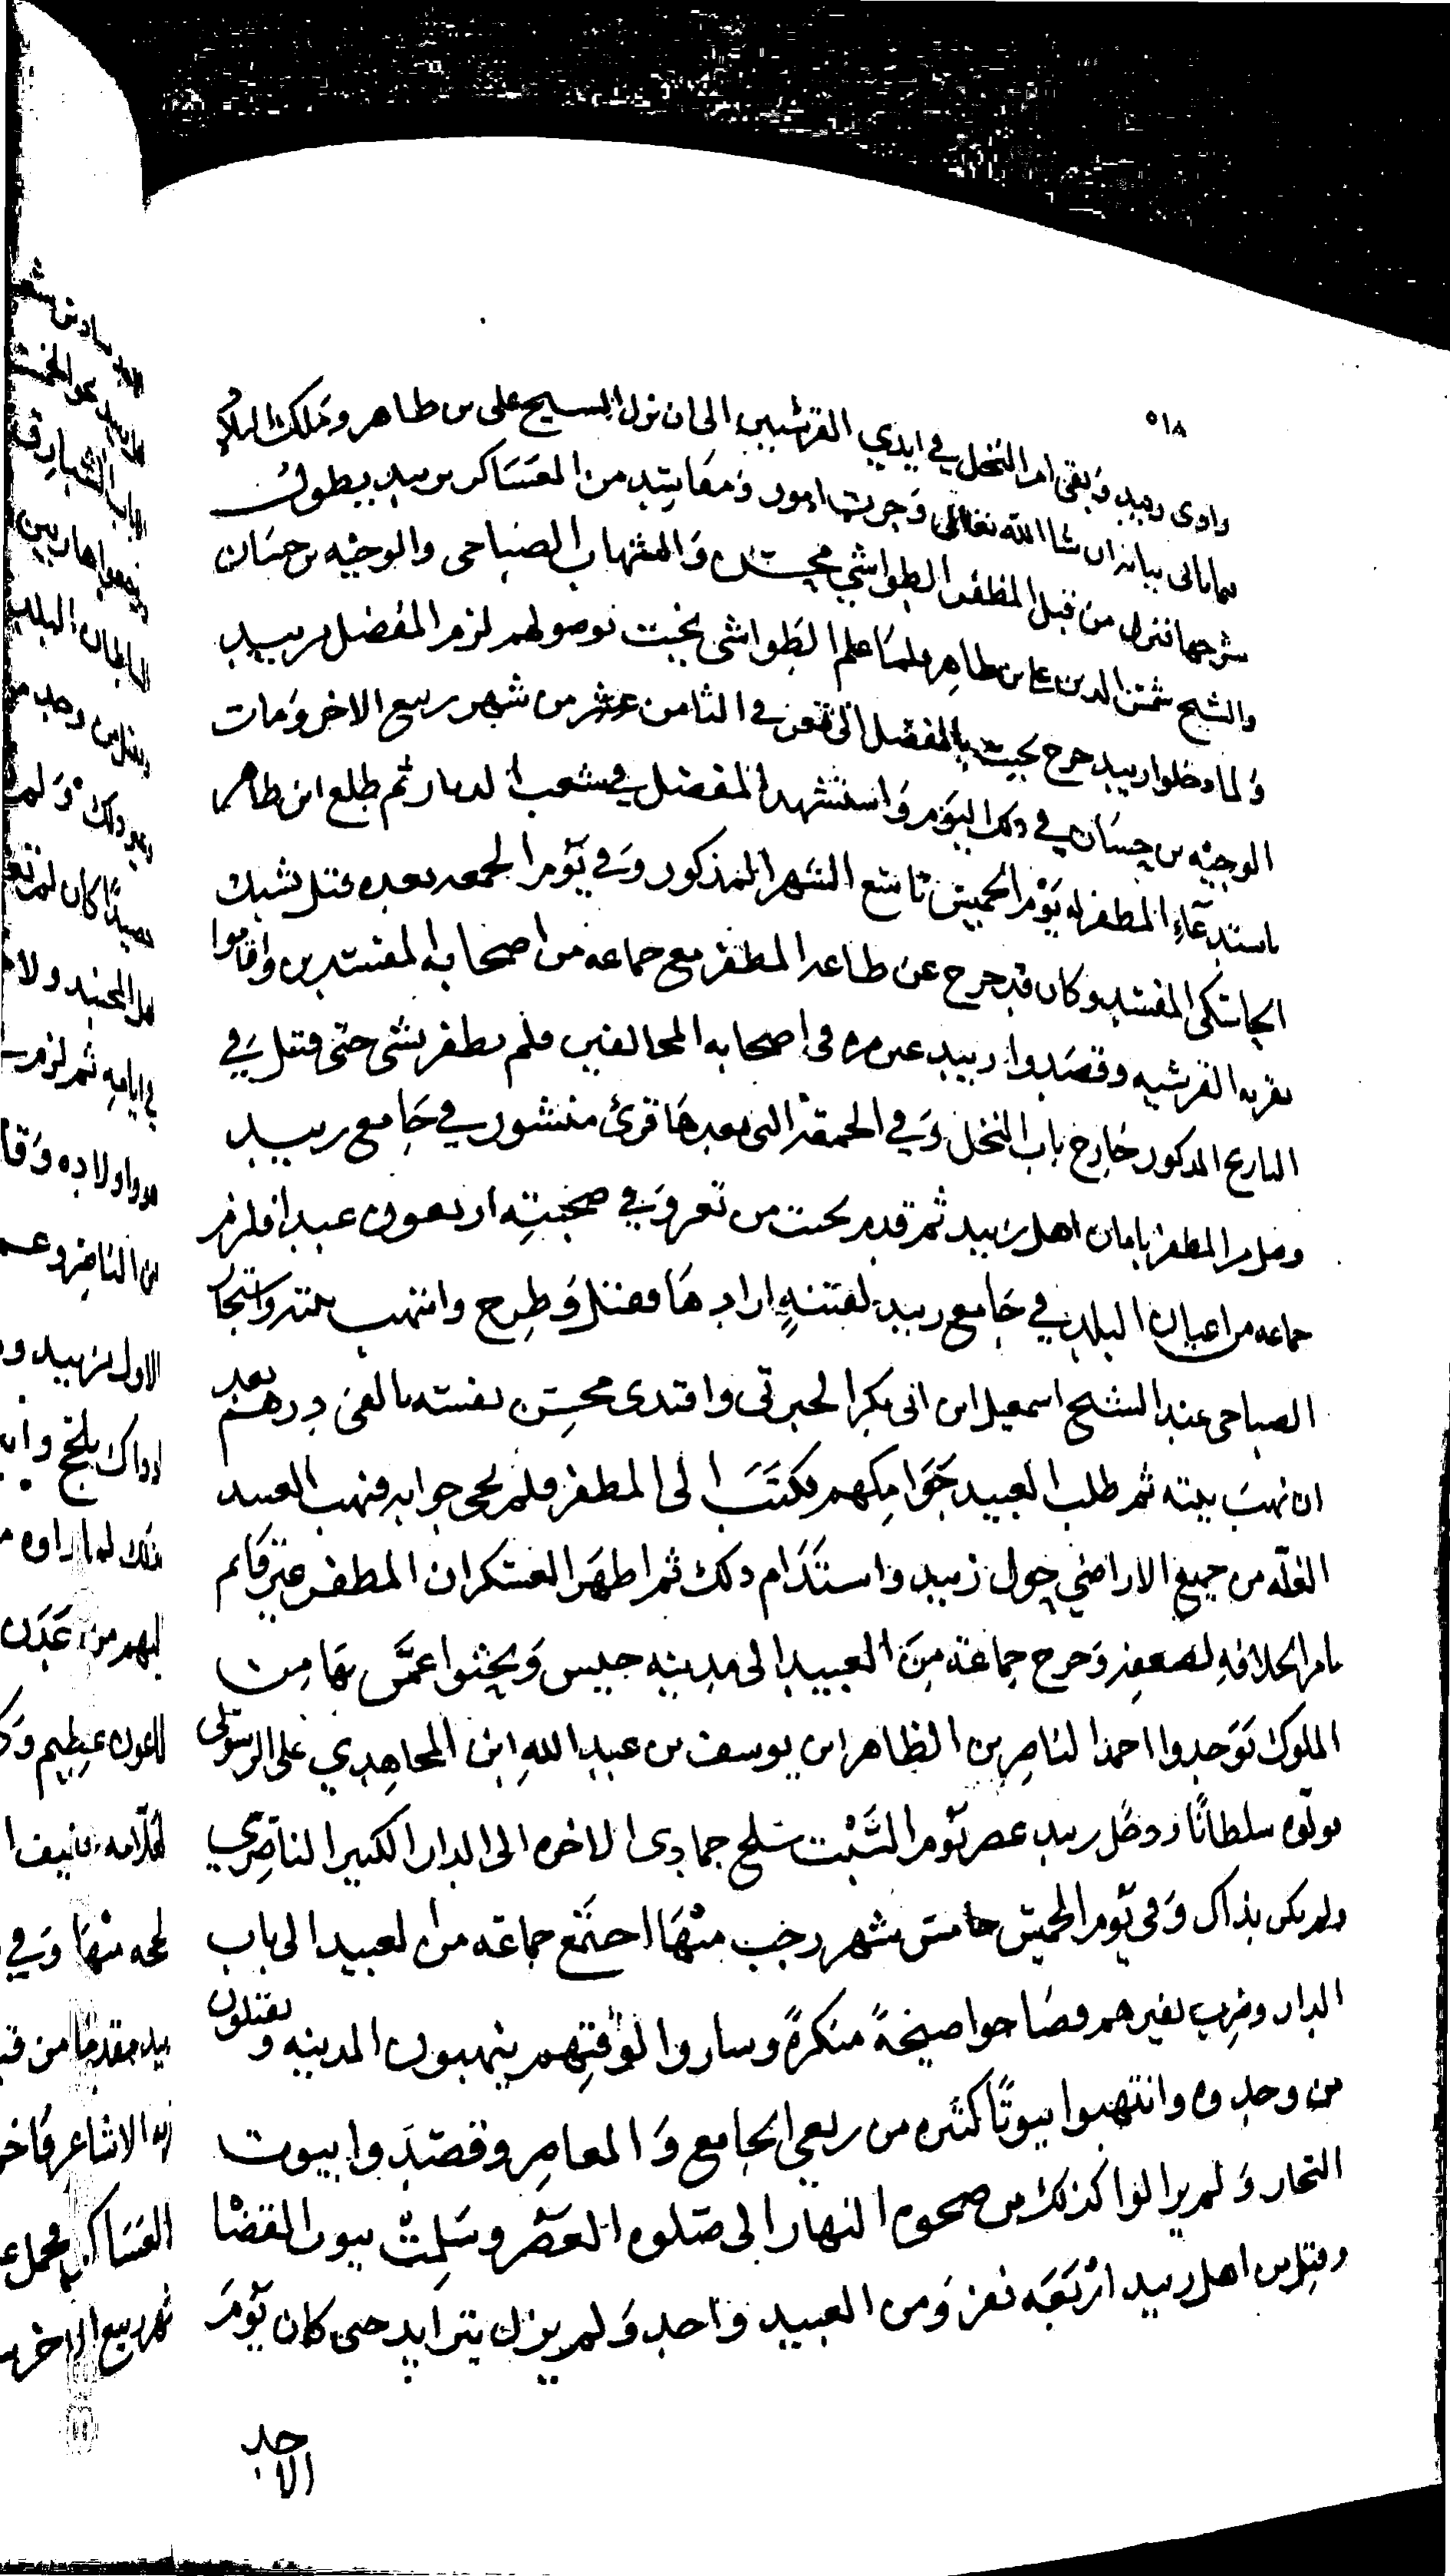 ٥١٨
وادى زبيد وبقى امر النخل في ايدي القرشيين الى ان نزل الشيخ على بن طاهر وملك البلاد
ساياتى بيانه ان شا الله تعالى وجرت امور ومفاسد من العساكر بزبيد يطول
شرحها فنزل من قبل المظفر الطواشي محسن والشهاب الصباحى والوجيه بن حسان
والشيخ شمس الدين على بن طاهر فلما علم الطواشى بخيت بوصولهم لزم المفضل بزبيد
ولما دخلوا زبيد خرج بخيت بالمفضل الى تعز في الثامن عشر من شهر ربيع الاخر ومات
الوجيه بن حسان في ذلك اليوم واستشهد المفضل في شعب الدبار ثم طلع ابن طاهر
باستدعاء المظفر له يوم الخميس تاسع الشهر المذكور وفي يوم الجمعه بعده قتل شبك
الجاسكى المفسد وكان قد خرج عن طاعه المظفر مع جماعه من اصحابه المفسدين واقاموا
بقريه القرشيه وقصدوا زبيد غير مره فى اصحابه المخالفين فلم يظفر بشى حتى قتل في
التاريخ المذكور خارج باب النخل وفي الجمعة التى بعدها قرئ منشور في جامع زبيد
من المظفر بامان اهل زبيد ثم قدم بخيت من تعز وفي صحبته اربعون عبدا فلزم
جماعه من اعيان البلد في جامع زبيد لفتنةٍ ارادها فقتل وطرح وانتهب بيته واستجار
الصباحى عند الشيخ اسمعيل ابن ابى بكر الجبرتى وافتدى محسن نفسه بالفى درهم بعد
ان نهب بيته ثم طلب العبيد جوامكهم فكتب الى المظفر فلم يجى جوابه فنهب العبيد
الغله من جميع الاراضي حول زبيد واستدام ذلك ثم اظهر العسكر ان المظفر غير قايم
بامر الخلافه لضعفه وخرج جماعة من العبيد الى مدينه حيس وبحثوا عمن بها من
الملوك فوجدوا احمد الناصر بن الظاهر ابن يوسف بن عبد الله ابن المجاهدي على الرسولى
فولوه سلطانا ودخل زبيد عصر يوم السبت سلخ جمادى الاخره الى الدار الكبير الناصري
ولم يكن بذاك وفى يوم الخميس خامس شهر رجب منها اجتمع جماعه من العبيد الى باب
الدار وضرب نفيرهم فصاحوا صيحةً منكرةً وساروا لوقتهم ينهبون المدينه ويقتلون
من وجدوه وانتهبوا بيوتا كثيره من ربعي الجامع والمعاصر وقصدوا بيوت
التجار ولم يزالوا كذلك من ضحوه النهار الى صلوه العصر وسلمت بيوت القضا
وقتل من اهل زبيد اربعه نفر ومن العبيد واحد ولم يزل يتزايد حتى كان يوم
الاحد